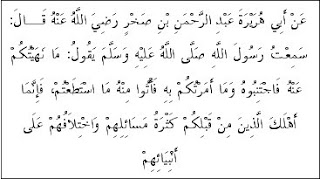 عَنْ أَبِي هُرَيْرَةَ عَبْدِ الرَّحْمَنِ بْنِ صَخْرٍ رَضِيَ اللَّهُ عَنْهُ قَـــالَ:
سَمِعْتُ رَسُولَ اللَّهِ صَلَّى اللَّهُ عَلَيْهِ وَسَلَّمَ يَقُولُ: مَا نَهَيْتُكُمْ
عَنْهُ فَاجْتَنِبُوهُ وَمَا أَمَرْتُكُمْ بِهِ فَأْتُوا مِنْهُ مَا اسْتَطَعْتُمْ، فَإِنَّمَا
أَهْلَكَ الَّذِينَ مِنْ قَبْلِكُمْ كَثْرَةُ مَسَائِلِهِمْ وَاخْتِلَافُهُمْ عَلَى
أَنْبِيَائِهِمْ